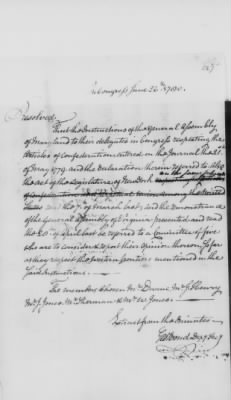 127
In Congress June 26th 1780.
Resolved,
That the Instructions of the General Assembly
of Maryland to their delegates in Congress respecting the
Articles of Confederation entered in the Journal the 21st
of May 1779 and the declaration therein referred to
the act of the Legislature of New York
on the 7. of March last, and the remonstrance
of the General Assembly of Virginia presented and read
the 28 of April last be referred to a Committee of five
who are to consider & report their opinion thereon so far
as they respect the western frontiers mentioned in the
said instructions.
The members chosen Mr Duane Mr J Henry
Mr J Jones Mr Sherman & Mr W Jones.
Extract from the minutes
G Bond Depy Secy